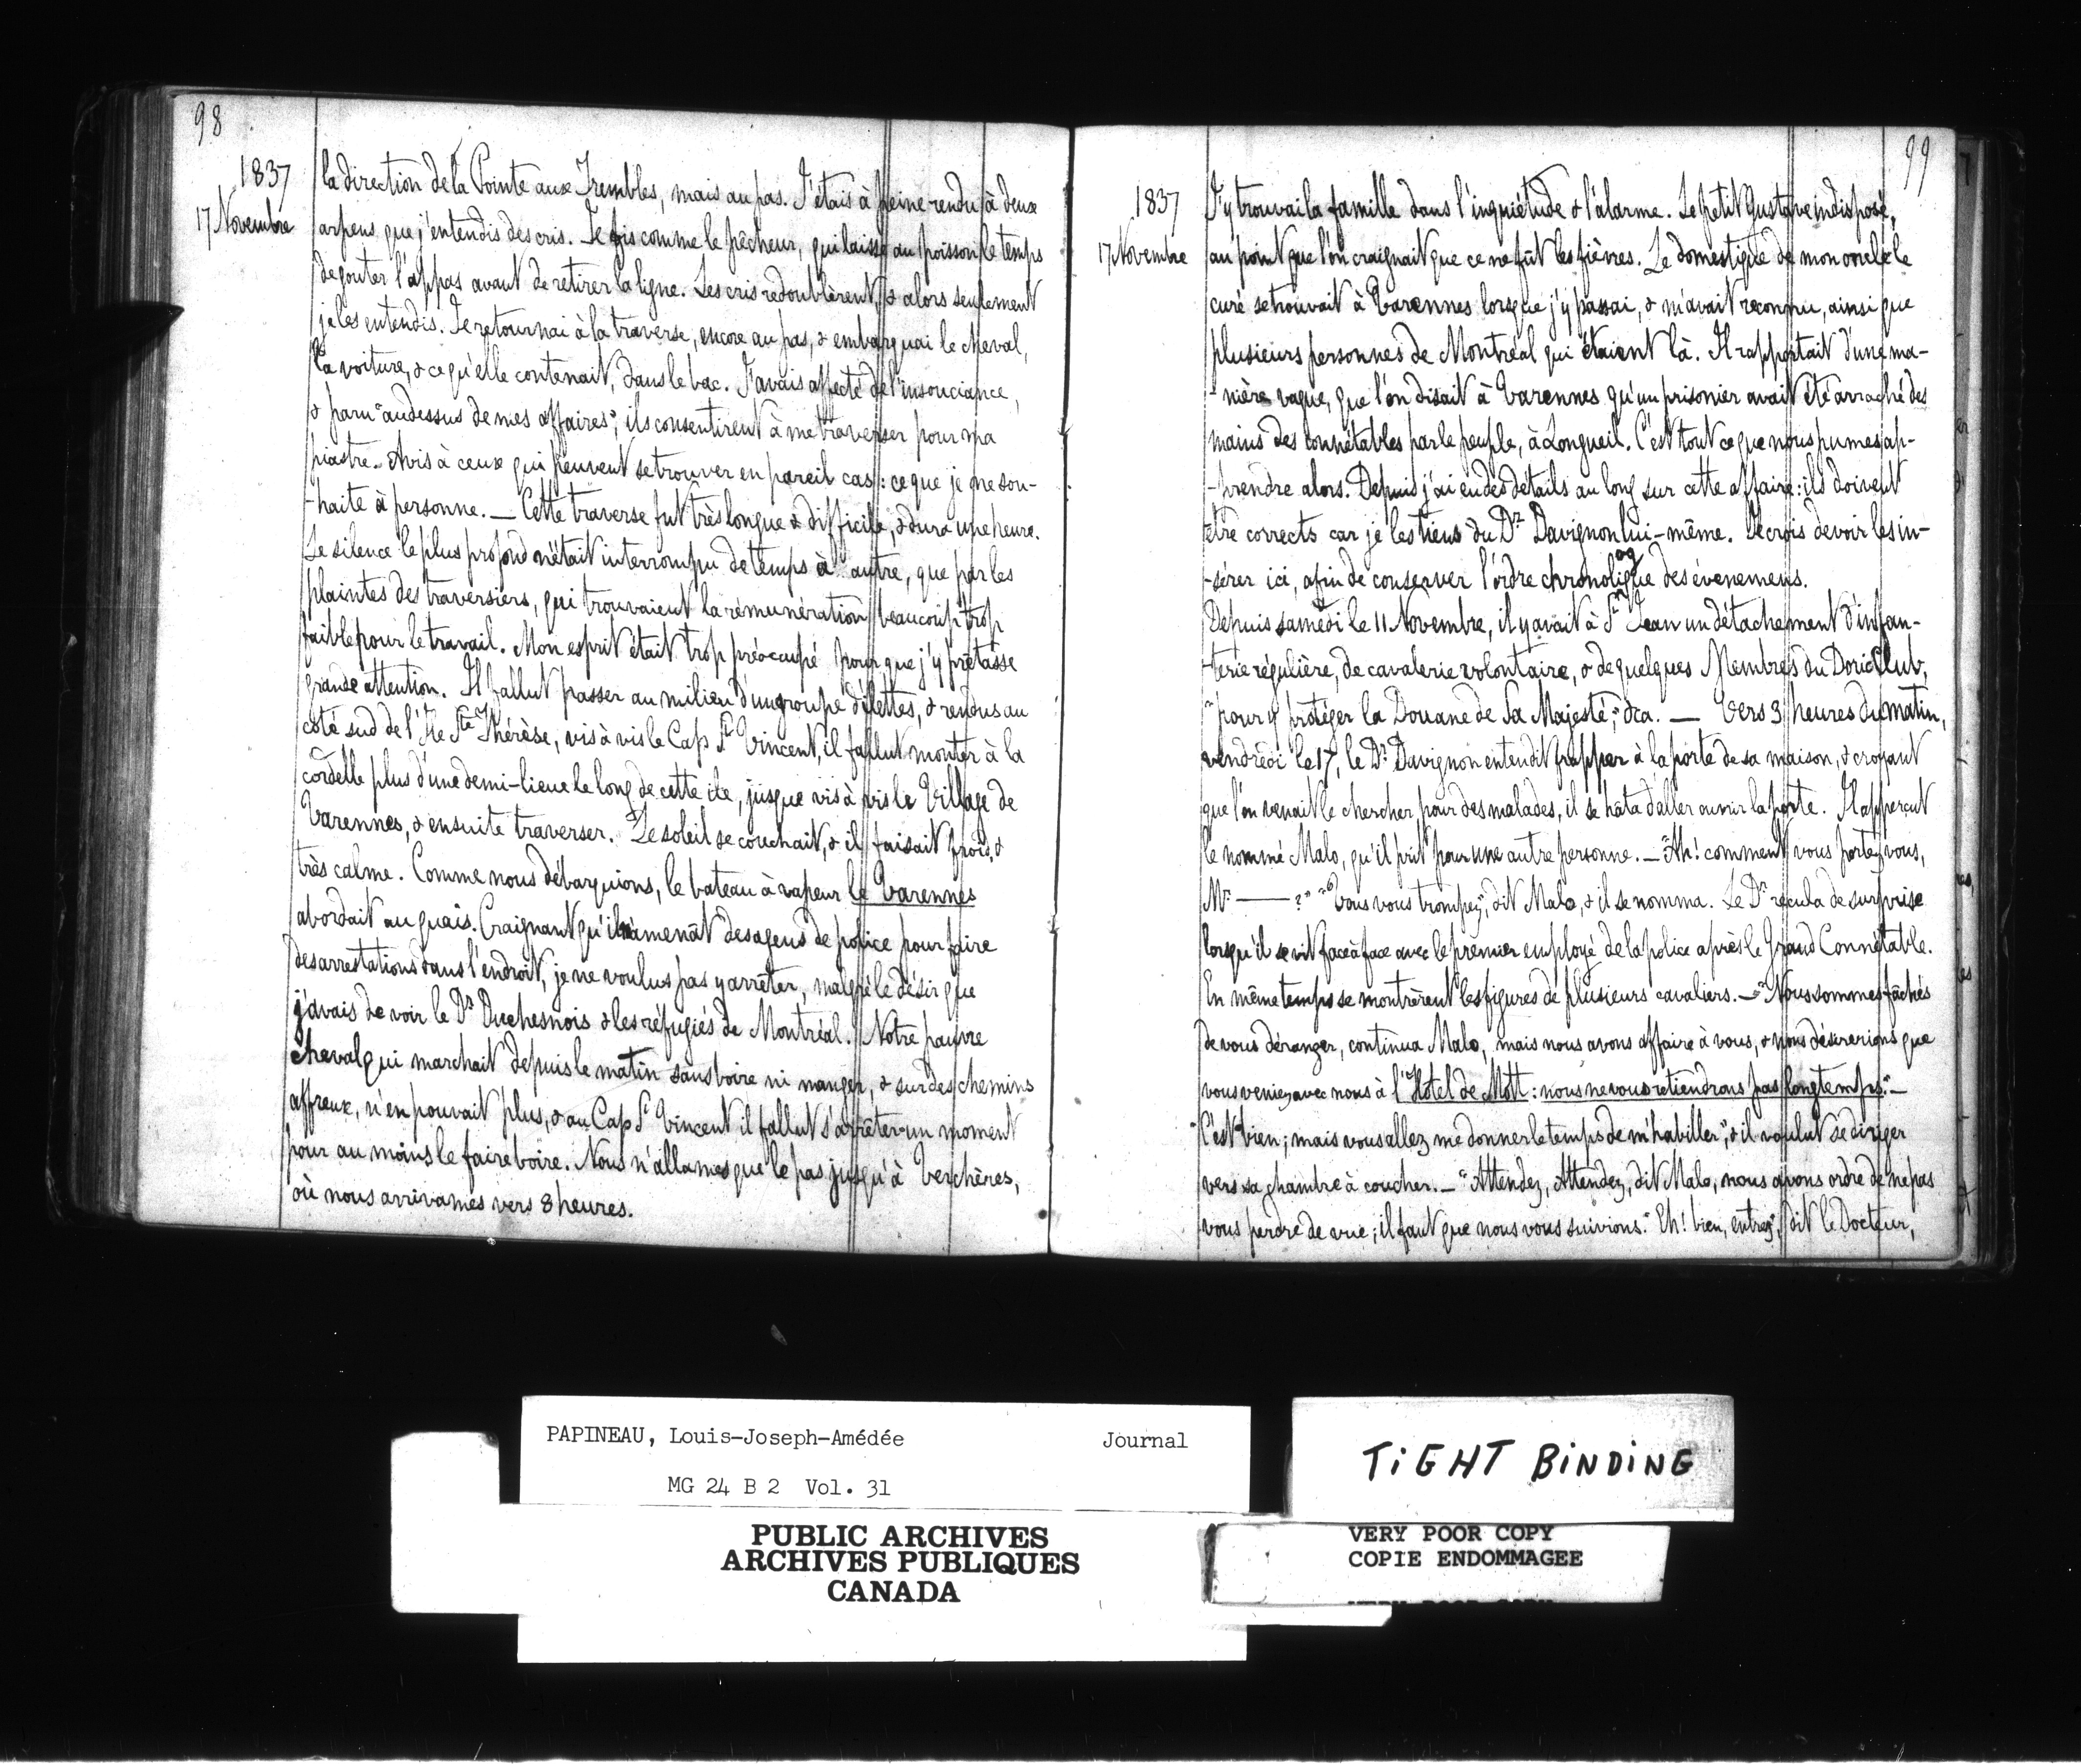 98
1837
17 Novembre
la direction de la Pointe aux Trembles, mais au pas. J'étais à peine rendu à deux
arpens, que j'entendis des cris. Je fis comme le pêcheur, qui laisse au poisson le temps
de gouter l'appas avant de retirer la ligne. Les cris redoublèrent, & alors seulement
je les entendis. Je retournai à la traverse, encore au pas, & embarquai le cheval,
la voiture, & ce qu'elle contenait, dans le bac. J'avais affecté de l'insouciance,
& paru "au dessus de mes affaires"; ils consentirent à me traverser pour ma
piastre. Avis à ceux qui peuvent se trouver en pareil cas: ce que je ne sou-
-haite à personne. — Cette traverse fut très longue & difficile, & dura une heure.
Le silence le plus profond n'était interrompu de temps à autre, que par les
plaintes des traversiers, qui trouvaient la rémunération beaucoup trop
faible pour le travail. Mon esprit était trop préoccupé pour que j'y prêtasse
grande attention. Il fallut passer au milieu d'un groupe d'ilettes, & rendus au
côté sud de l'Ile Ste Thérèse, vis à vis le Cap St Vincent, il fallut monter à la
cordelle plus d'une demi-lieue le long de cette ile, jusque vis à vis le Village de
Varennes, & ensuite traverser. Le soleil se couchait, & il faisait froid, &
très calme. Comme nous débarquions, le bateau à vapeur le Varennes
abordait au quais. Craignant qu'il n'amenât des agens de police pour faire
des arrestations dans l'endroit, je ne voulus pas y arrêter, malgré le désir que
j'avais de voir le Dr Duchesnois & les réfugiés de Montréal. Notre pauvre
cheval qui marchait depuis le matin sans boire ni manger, & sur des chemins
affreux, n'en pouvait plus, & au Cap St Vincent il fallut s'arrêter un moment
pour au moins le faire boire. Nous n'allames que le pas jusqu'à Verchères,
où nous arrivames vers 8 heures.
99
1837
17 Novembre
J'y trouvai la famille dans l'inquiétude & l'alarme. Le petit Gustave indisposé,
au point que l'on craignait que ce ne fût les fièvres. Le domestique de mon oncle le
curé se trouvait à Varennes lorsque j'y passai, & m'avait reconnu, ainsi que
plusieurs personnes de Montréal qui étaient là. Il rapportait d'une ma-
-nière vague, que l'on disait à Varennes qu'un prisonier avait été arraché des
mains des connétables par le peuple, à Longueil. C'est tout ce que nous pumes ap-
-prendre alors. Depuis j'ai eu des détails au long sur cette affaire: ils doivent
être corrects car je les tiens du Dr Davignon lui-même. Je crois devoir les in-
-sérer ici, afin de conserver l'ordre chronologique des évenemens.
Depuis samedi le 11 Novembre, il y avait à St Jean un détachement d'infan-
-terie régulière, de cavalerie volontaire, & de quelques Membres du Doric Club,
"pour y protéger la Douane de Sa Majesté," &ca. — Vers 3 heures du matin,
vendredi le 17, le Dr Davignon entendit frapper à la porte de sa maison, & croyant
que l'on venait le chercher pour des malades, il se hâta d'aller ouvrir la porte. Il apperçut
le nommé Malo, qu'il prit pour une autre personne. — "Ah! comment vous portez vous,
Mr. —— ?" "Vous vous trompez", dit Malo, & il se nomma. Le Dr recula de surprise
lorsqu'il se vit face à face avec le premier employé de la police après le Grand Connétable.
En même temps se montrèrent les figures de plusieurs cavaliers. — "Nous sommes fâchés
de vous déranger, continua Malo, mais nous avons affaire à vous, & nous désirerions que
vous veniez avec nous à l'Hotel de Mott: nous ne vous retiendrons pas longtemps." —
"C'est bien; mais vous allez me donner le temps de m'habiller", & il voulut se diriger
vers sa chambre à coucher. — "Attendez, Attendez, dit Malo, nous avons ordre de ne pas
vous perdre de vue; il faut que nous vous suivions." Eh! bien, entrez", dit le Docteur,
PAPINEAU, Louis-Joseph-Amédée Journal
MG 24 B 2 Vol. 31
PUBLIC ARCHIVES
ARCHIVES PUBLIQUES
CANADA
TIGHT BINDING
VERY POOR COPY
COPIE ENDOMMAGEE